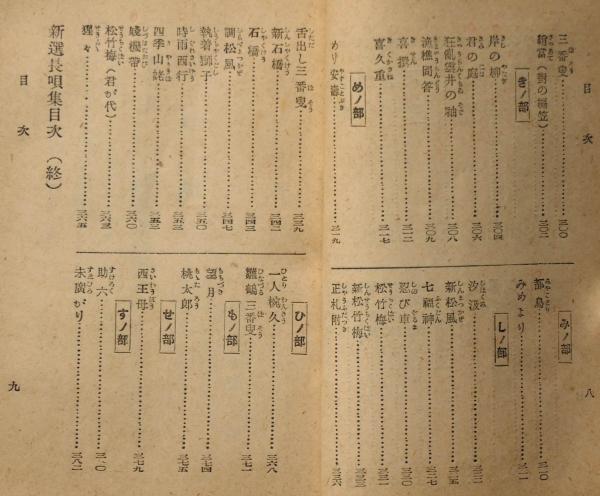 目次
三番叟 三〇〇
鞘當(對の編笠) 三〇二
きノ部
岸の柳 三〇四
君の庭 三〇六
狂亂雲井の袖 三〇八
漁樵問答 三〇九
喜撰 三一二
喜久重 三一七
めノ部
めりやす 壽 三一九
みノ部
都鳥 三二〇
みめより 三二一
しノ部
汐汲 三二二
新松風 三二五
七福神 三二七
忍び車 三三〇
松竹梅 三三一
新松竹梅 三三三
正札附 三三六
八
舌出し三番叟 三三九
新石橋 三四二
石橋 三四三
調松風 三四七
執着獅子 三五〇
時雨西行 三五三
四季山姥
賤機帶 三六〇
松竹梅(君が代)
猩々 三六五
新選長唄集目次(終)
目次
ひノ部
一人椀久 三六八
雛鶴三番叟 三七一
もノ部
望月 三七四
桃太郎 三七五
せノ部
西王母 三七九
すノ部
助六 三八〇
末廣がり 三八二
九